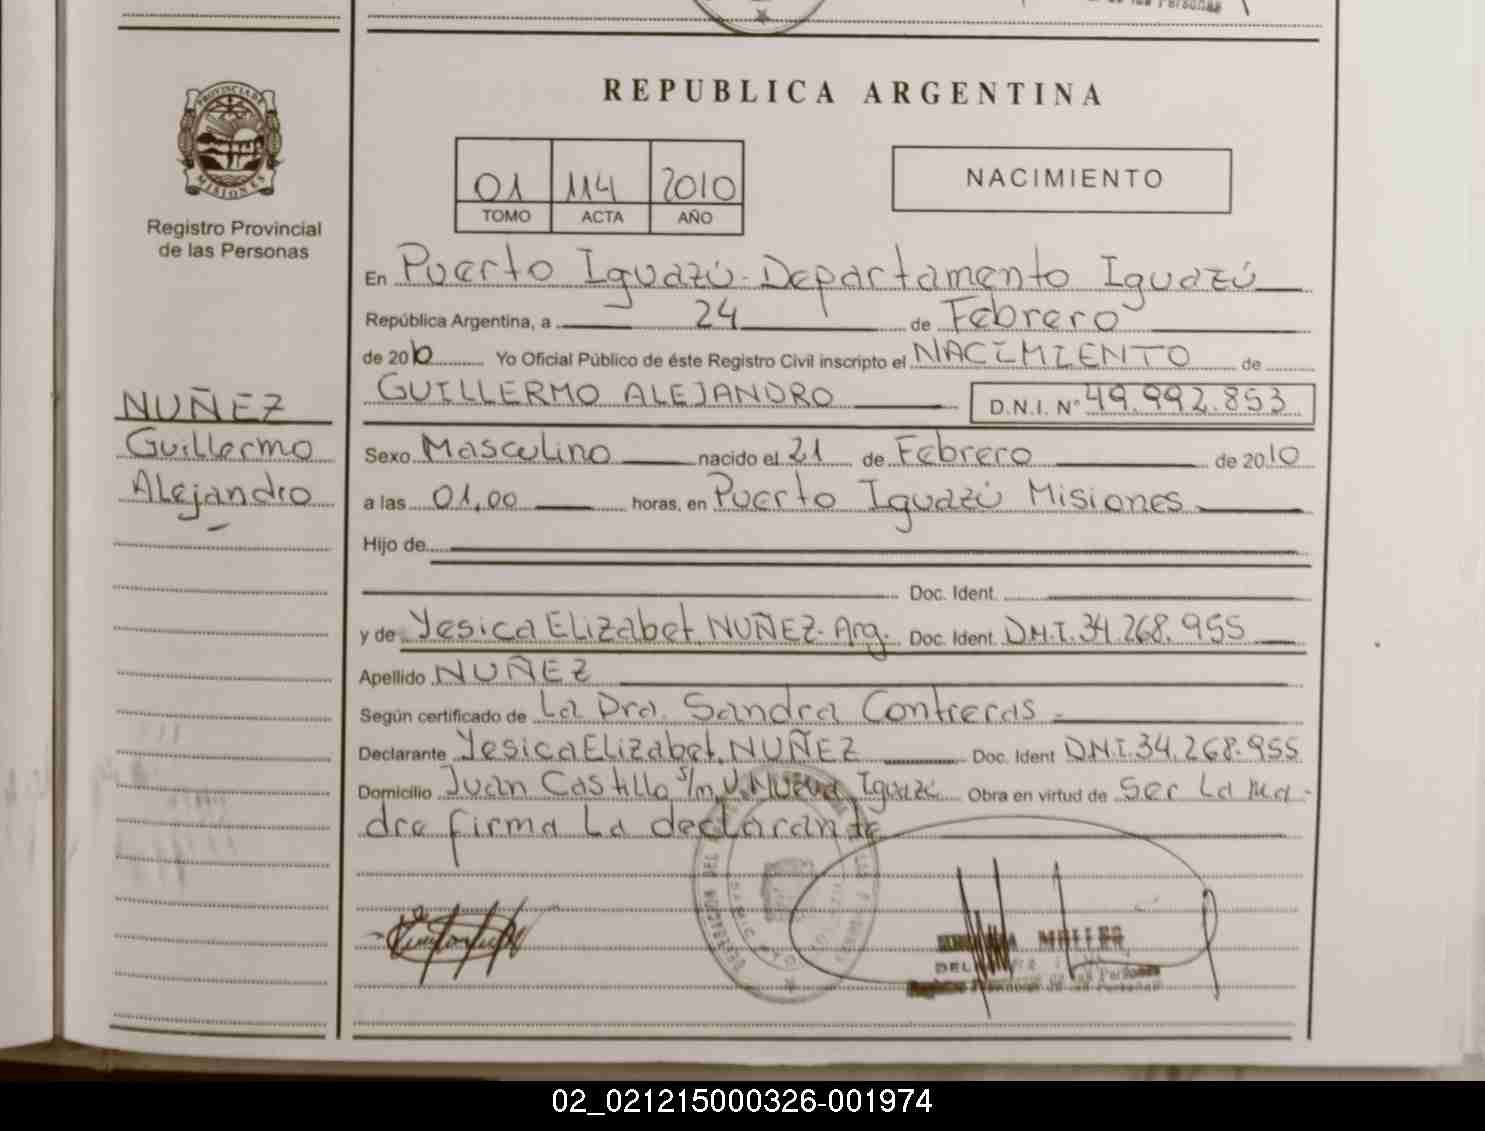 REPUBLICA ARGENTINA
PROVINCIA DE MISIONES
Registro Provincial
de las Personas
01 114 2010
TOMO ACTA AÑO
NACIMIENTO
En Puerto Iguazú - Departamento Iguazú
República Argentina, a 24 de Febrero
de 2010 Yo Oficial Público de éste Registro Civil inscripto el NACIMIENTO de
GUILLERMO ALEJANDRO D.N.I. Nº 49.992.853
NUÑEZ
Guillermo
Alejandro
Sexo Masculino nacido el 21 de Febrero de 2010
a las 01,00 horas, en Puerto Iguazú Misiones
Hijo de
Doc. Ident.
y de Yesica Elizabet NUÑEZ - Arg. Doc. Ident. D.N.I. 34.268.955
Apellido NUÑEZ
Según certificado de La Dra. Sandra Contreras -
Declarante Yesica Elizabet NUÑEZ Doc. Ident D.N.I. 34.268.955
Domicilio Juan Castillo s/n, V. Nueva, Iguazú Obra en virtud de Ser La ma-
dre firma La declarante
de las Personas
02_021215000326-001974